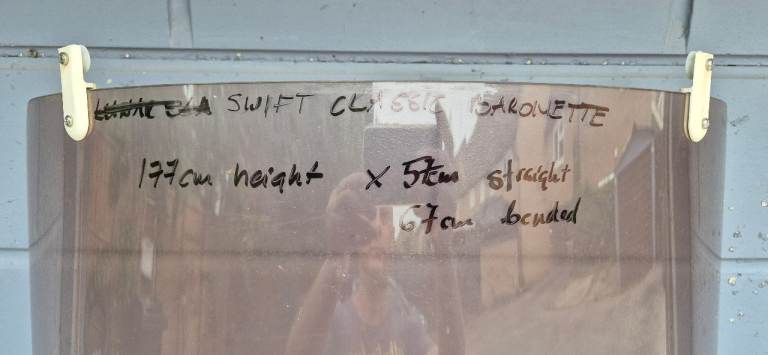 SWIFT CLASSIC BARONETTE
177cm height x 57cm straight
67cm bended